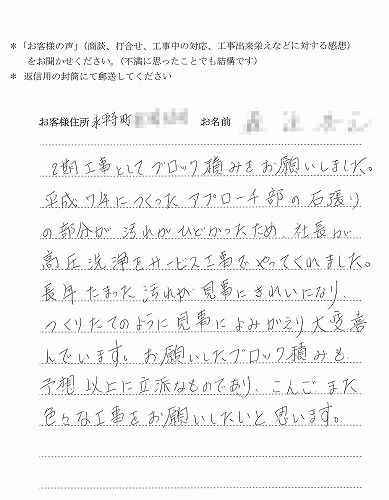 ＊「お客様の声」（商談、打合せ、工事中の対応、工事出来栄えなどに対する感想）
をお聞かせください。（不満に思ったことでも結構です）
＊ 返信用の封筒にて郵送してください
お客様住所 永平寺町 お名前
2期工事としてブロック積みをお願いしました。
平成7年につくったアプローチ部の石張り
の部分が 汚れがひどかったため、社長が
高圧洗浄をサービス工事でやってくれました。
長年たまった汚れが見事にきれいになり、
つくりたてのように見事によみがえり大変喜
んでいます。お願いしたブロック積みも
予想以上に立派なものであり、こんごまた
色々な工事をお願いしたいと思います。